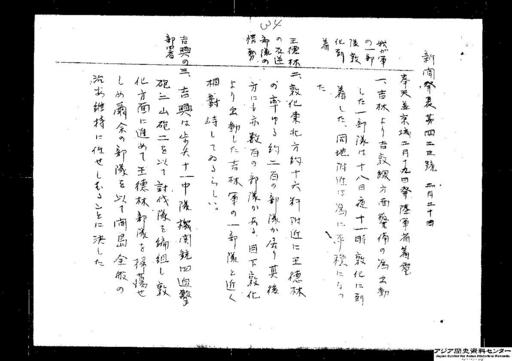 新聞発表第四二三號 二月二十日
奉天並京城二月十九日発陸軍省着電
我が軍の一部隊敦化到着
一、吉林より吉敦線方面警備の為出動
した一部隊は十八日夜十一時敦化に到
着した、同地附近は為に平穏になつ
た
王德林の部隊の情勢
二、敦化東北方約十六粁附近に王德林
の率ゆる約二百の部隊が居り其後
方にも亦数百の部隊がある、目下敦化
より出動した吉林軍の一部隊と近く
相對峙してゐるらしい
吉興の部署
三、吉興は歩兵十一中隊機関銃四迫撃
砲二山砲二を以て討伐隊を編組し敦
化方面に進めて王德林部隊を掃蕩せ
しめ爾余の部隊を以て間島全般の
治安維持に任せしむることに決した
アジア歴史資料センター
Japan Center for Asian Historical Records